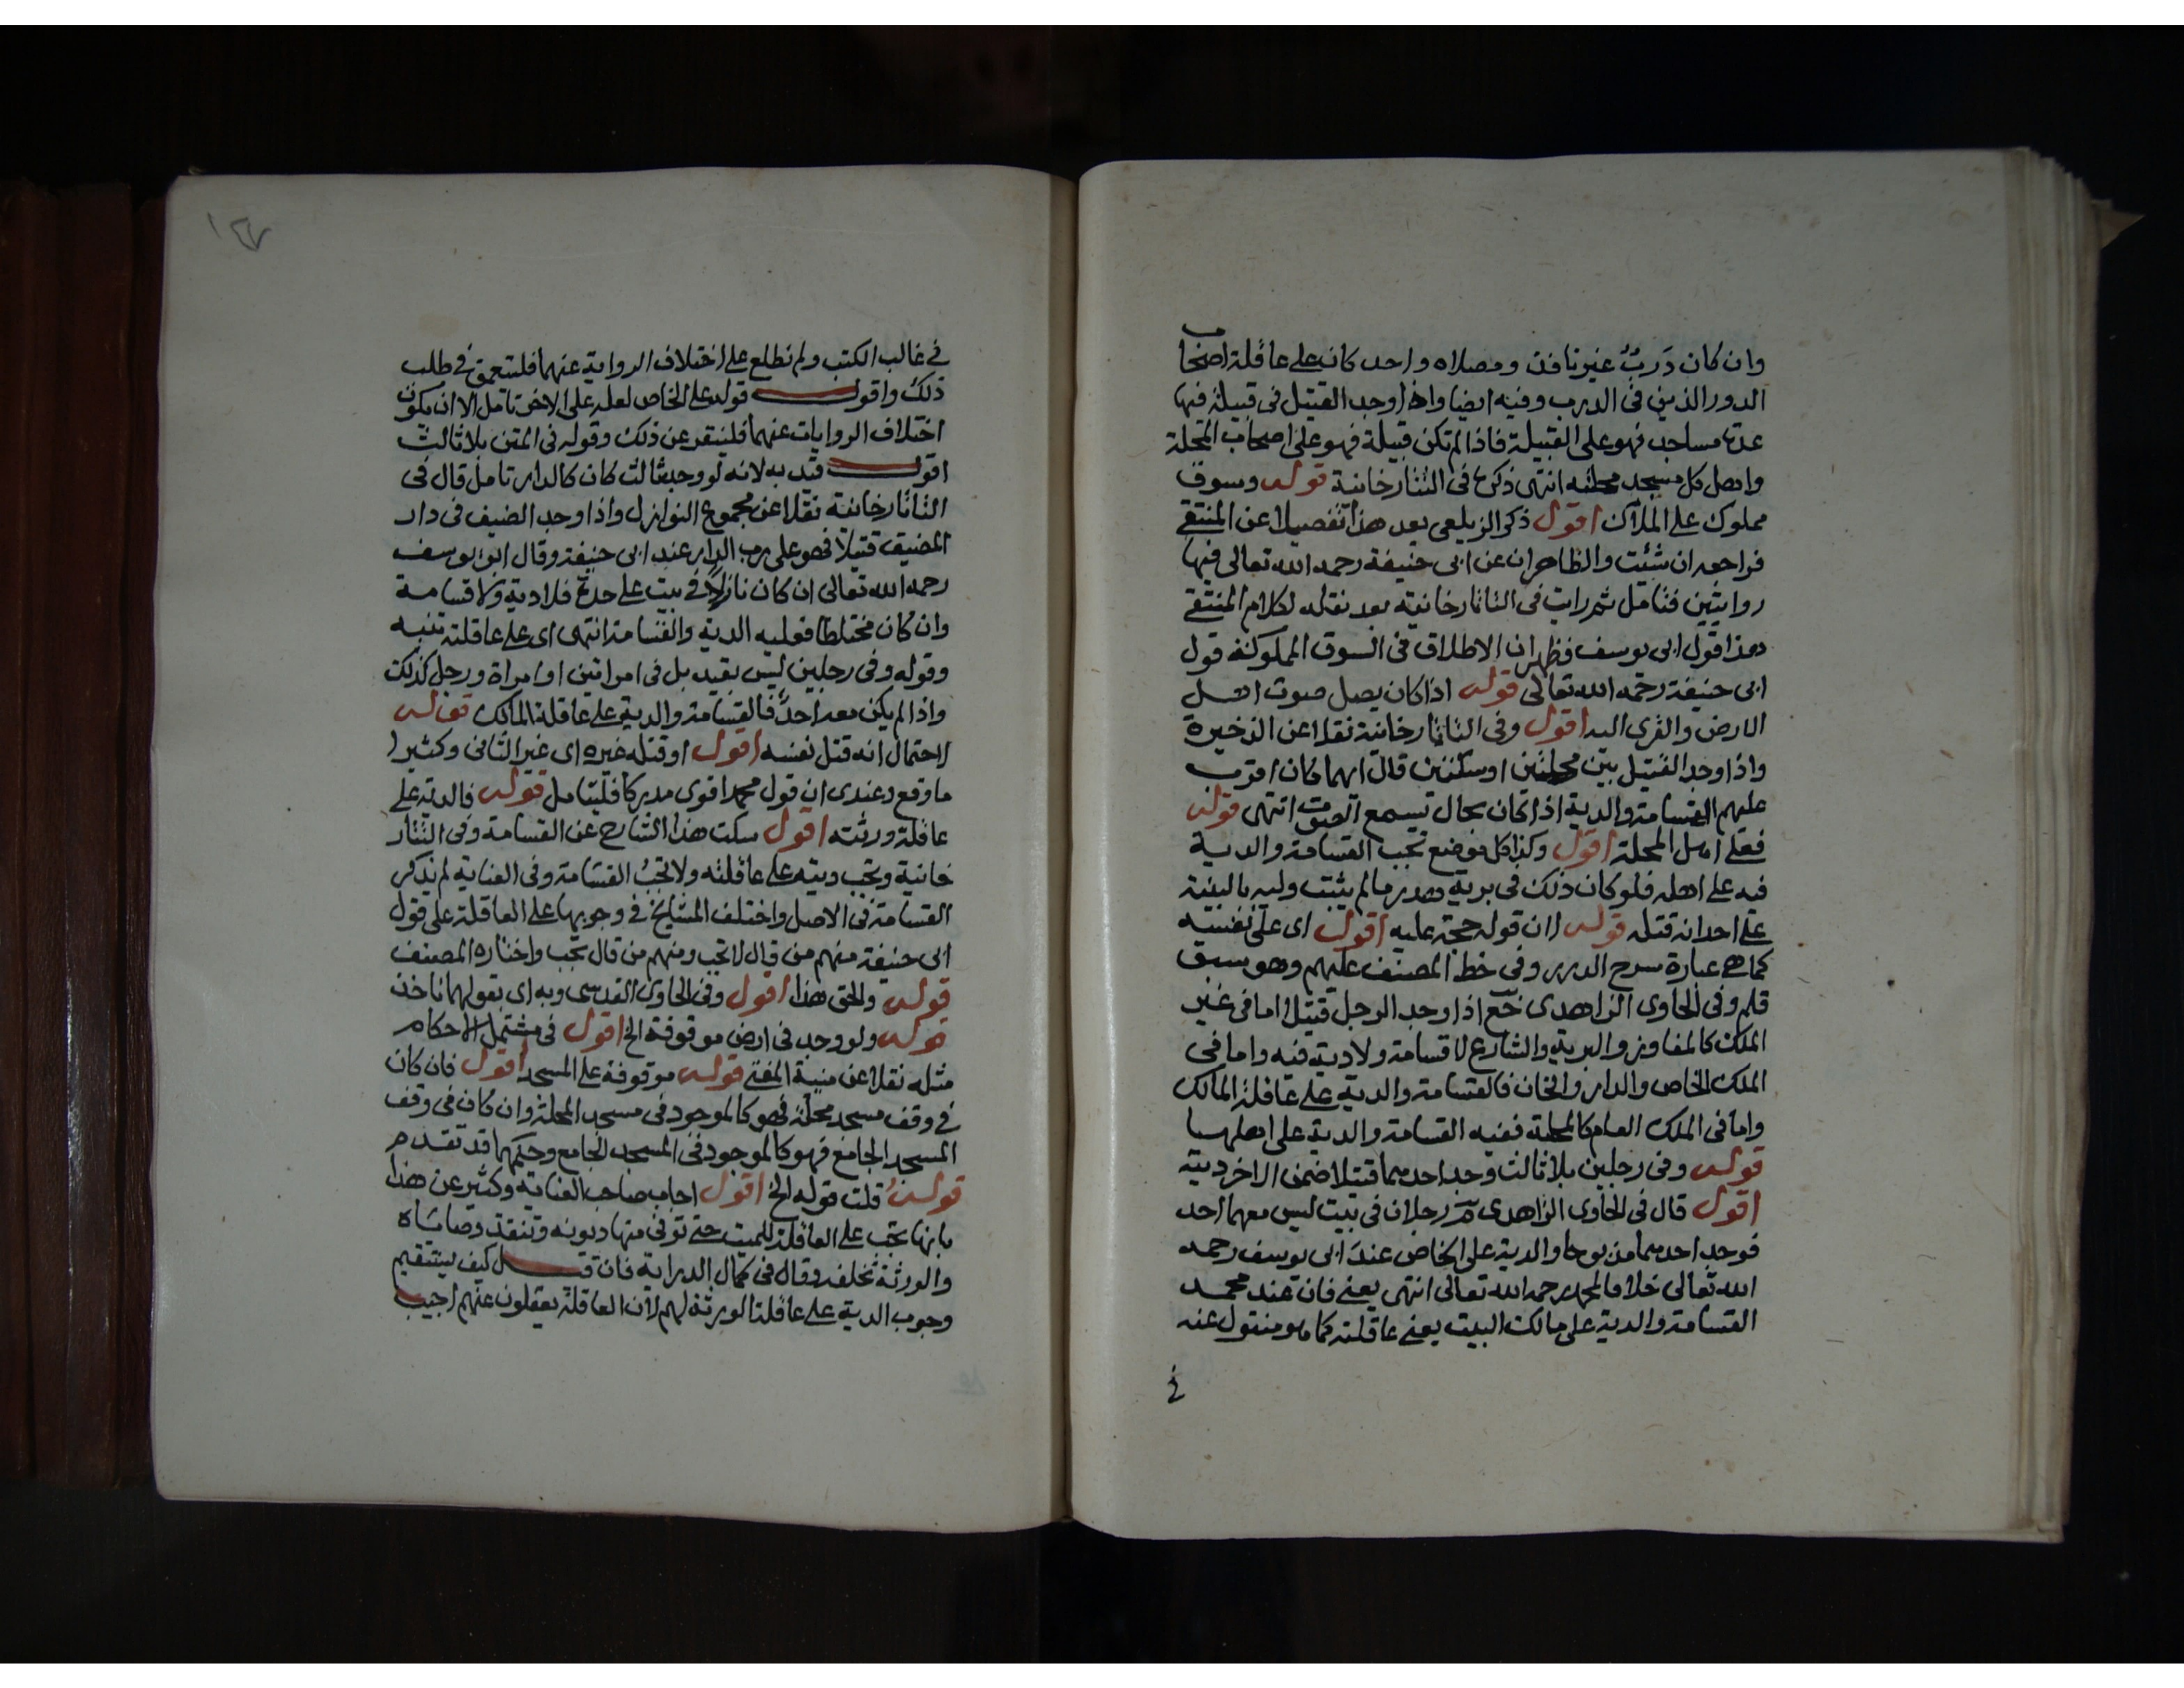 وان كان درب غير نافذ ومصلاه واحد كان على عاقلة اصحاب
الدور الذين فى الدرب وفيه ايضا واذا وجد القتيل فى قبيلة فيها
عدة مساجد فهو على القبيلة فاذا لم تكن قبيلة فهو على اصحاب المحلة
واهل كل مسجد محلته انتهى ذكره فى التتارخانية قوله وسوق
مملوك على الملاك اقول ذكر الزيلعى بعد هذا تفصيلا عن المنتقى
فراجعه ان شئت والظاهر ان عن ابى حنيفة رحمه الله تعالى فيها
روايتين فتامل ثم رايت فى التاتارخانية بعد نقله لكلام المنتقى
هذا قول ابى يوسف فظهر ان الاطلاق فى السوق المملوكة قول
ابى حنيفة رحمه الله تعالى قوله اذا كان يصل صوت اهل
الارض والقرى اليه اقول وفى التاتارخانية نقلا عن الذخيرة
واذا وجد القتيل بين محلتين او سكتين قال ايهما كان اقرب
عليهم القسامة والدية اذا كان بحال يسمع الصوت انتهى قوله
فعلى اهل المحلة اقول وكذا كل موضع تجب القسامة والدية
فيه على اهله فلو كان ذلك فى برية هدر ما لم يثبت وليه بالبينة
على احد انه قتله قوله لان قوله حجة عليه اقول اى على نفسه
كما هى عبارة شرح الدرر وفى خط المصنف عليهم وهو سبق
قلم وفى الحاوى الزاهدى خع اذا وجد الرجل قتيلا اما فى غير
الملك كالمفاوز والبرية والشارع لا قسامة ولا دية فيه واما فى
الملك الخاص والدار والخان فالقسامة والدية على عاقلة المالك
واما فى الملك العام كالمحلة ففيه القسامة والدية على اهلها
قوله وفى رجلين بلا ثالث وجد احدهما قتيلا ضمن الاخر ديته
اقول قال فى الحاوى الزاهدى رجلان فى بيت ليس معهما احد
فوجد احدهما مذبوحا والدية على الخاص عند ابى يوسف رحمه
الله تعالى خلافا لمحمد رحمه الله تعالى انتهى يعنى فان عند محمد
القسامة والدية على مالك البيت يعنى عاقلته كما هو منقول عنه
فى
١٤٧
فى غالب الكتب ولم نطلع على اختلاف الرواية عنهما فليتعمق فى طلب
ذلك واقول قوله على الخاص لعله على الاخر تامل الا ان يكون
اختلاف الروايات عنهما فلينقر عن ذلك وقوله فى المتن بلا ثالث
اقول قيد به لانه لو وجد ثالث كان كالدار تامل قال فى
التاتارخانية نقلا عن مجموع النوازل واذا وجد الضيف فى دار
المضيف قتيلا فهو على رب الدار عند ابى حنيفة وقال ابو يوسف
رحمه الله تعالى ان كان نازلا فى بيت على حدة فلا دية ولا قسامة
وان كان مختلطا فعليه الدية والقسامة انتهى اى على عاقلته تنبيه
وقوله وفى رجلين ليس بقيد بل فى امراتين او امراة ورجل كذلك
واذا لم يكن معه احد فالقسامة والدية على عاقلة المالك قوله
لاحتمال انه قتل نفسه اقول او قتله غيره اى غير الثانى وكثيرا
ما وقع وعندى ان قول محمد اقوى مدركا فليتامل قوله فالدية على
عاقلة ورثته اقول سكت هذا الشارح عن القسامة وفى التتار
خانية وتجب ديته على عاقلته ولا تجب القسامة وفى العناية لم يذكر
القسامة فى الاصل واختلف المشايخ فى وجوبها على العاقلة على قول
ابى حنيفة منهم من قال لا تجب ومنهم من قال تجب واختاره المصنف
قوله والحق هذا اقول وفى الحاوى القدسى وبه اى بقولهما ناخذ
قوله ولو وجد فى ارض موقوفة الخ اقول فى مشتمل الاحكام
مثله نقلا عن منية المفتى قوله موقوفة على المسجد اقول فان كان
فى وقف مسجد محلة فهو كالموجود فى مسجد المحلة وان كان فى وقف
المسجد الجامع فهو كالموجود فى المسجد الجامع وحكمهما قد تقدم
قوله قلت قوله الخ اقول اجاب صاحب العناية وكثير عن هذا
بانها تجب على العاقلة للميت حتى توفى منها ديونه وتنفذ وصاياه
والورثة تخلفه وقال فى كمال الدراية فان قيل كيف يستقيم
وجوب الدية على عاقلة الورثة لهم لان العاقلة يعقلون عنهم اجيب